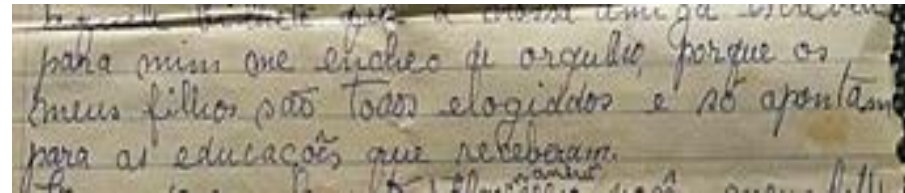 bilhete que a nossa amiga escreveu
para mim me encheo de orgulho, porque os
meus filhos são todos elogiados e só apontam
para as educações que receberam.
você